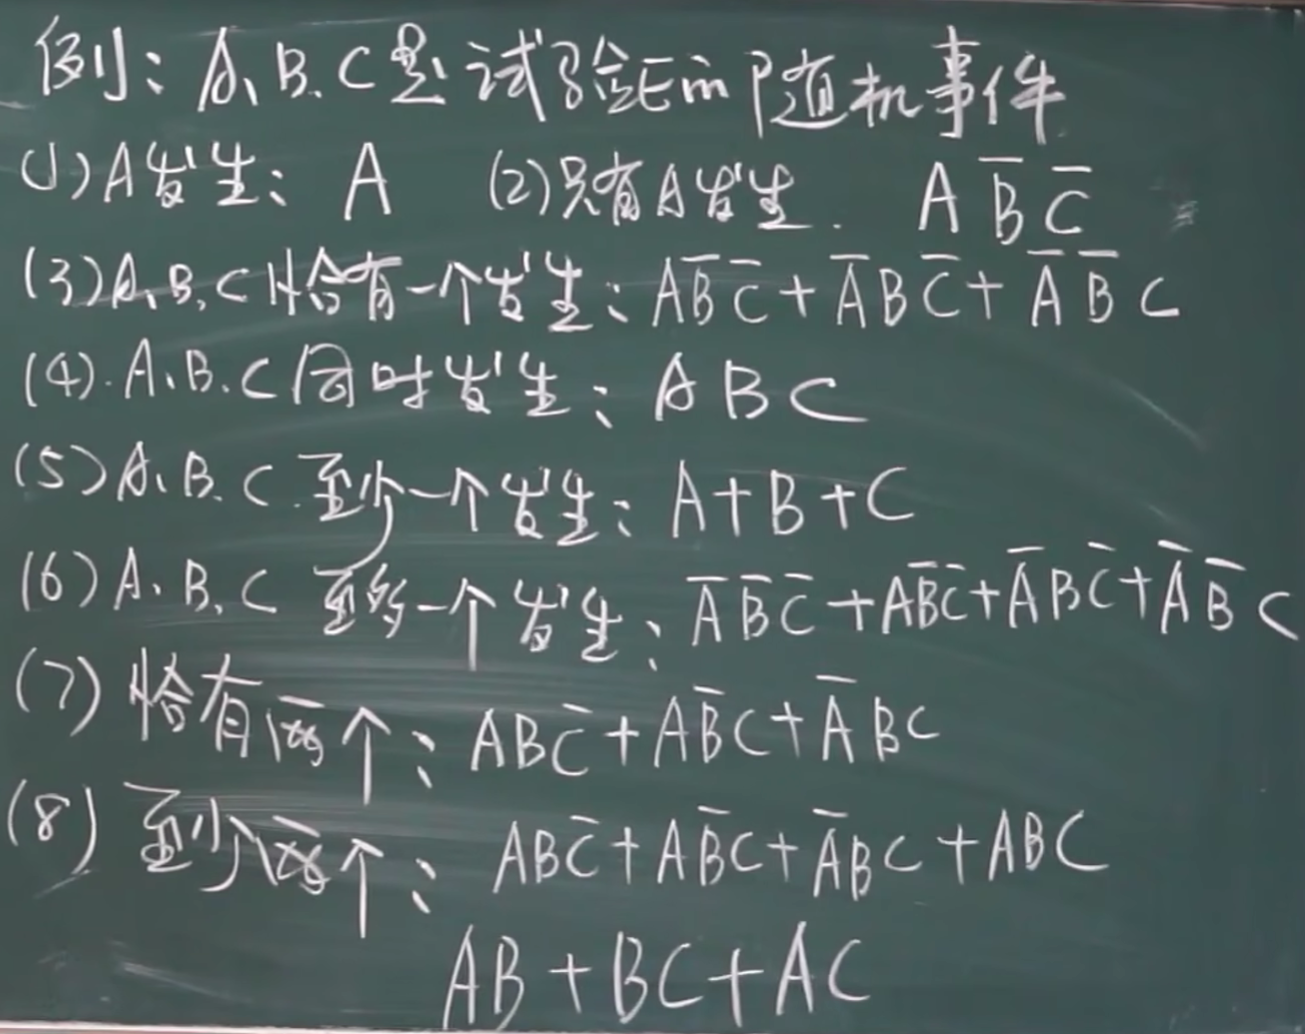 例：A、B、C是试验E的随机事件
(1)A发生：A (2)只有A发生. AB̅C̅
(3)A、B、C恰有一个发生：AB̅C̅+A̅BC̅+A̅B̅C
(4).A、B、C同时发生：ABC
(5)A、B、C.至少一个发生：A+B+C
(6)A、B、C 至多一个发生：A̅B̅C̅+AB̅C̅+A̅BC̅+A̅B̅C
(7)恰有两个：ABC̅+AB̅C+A̅BC
(8)至少两个：ABC̅+AB̅C+A̅BC+ABC
AB+BC+AC